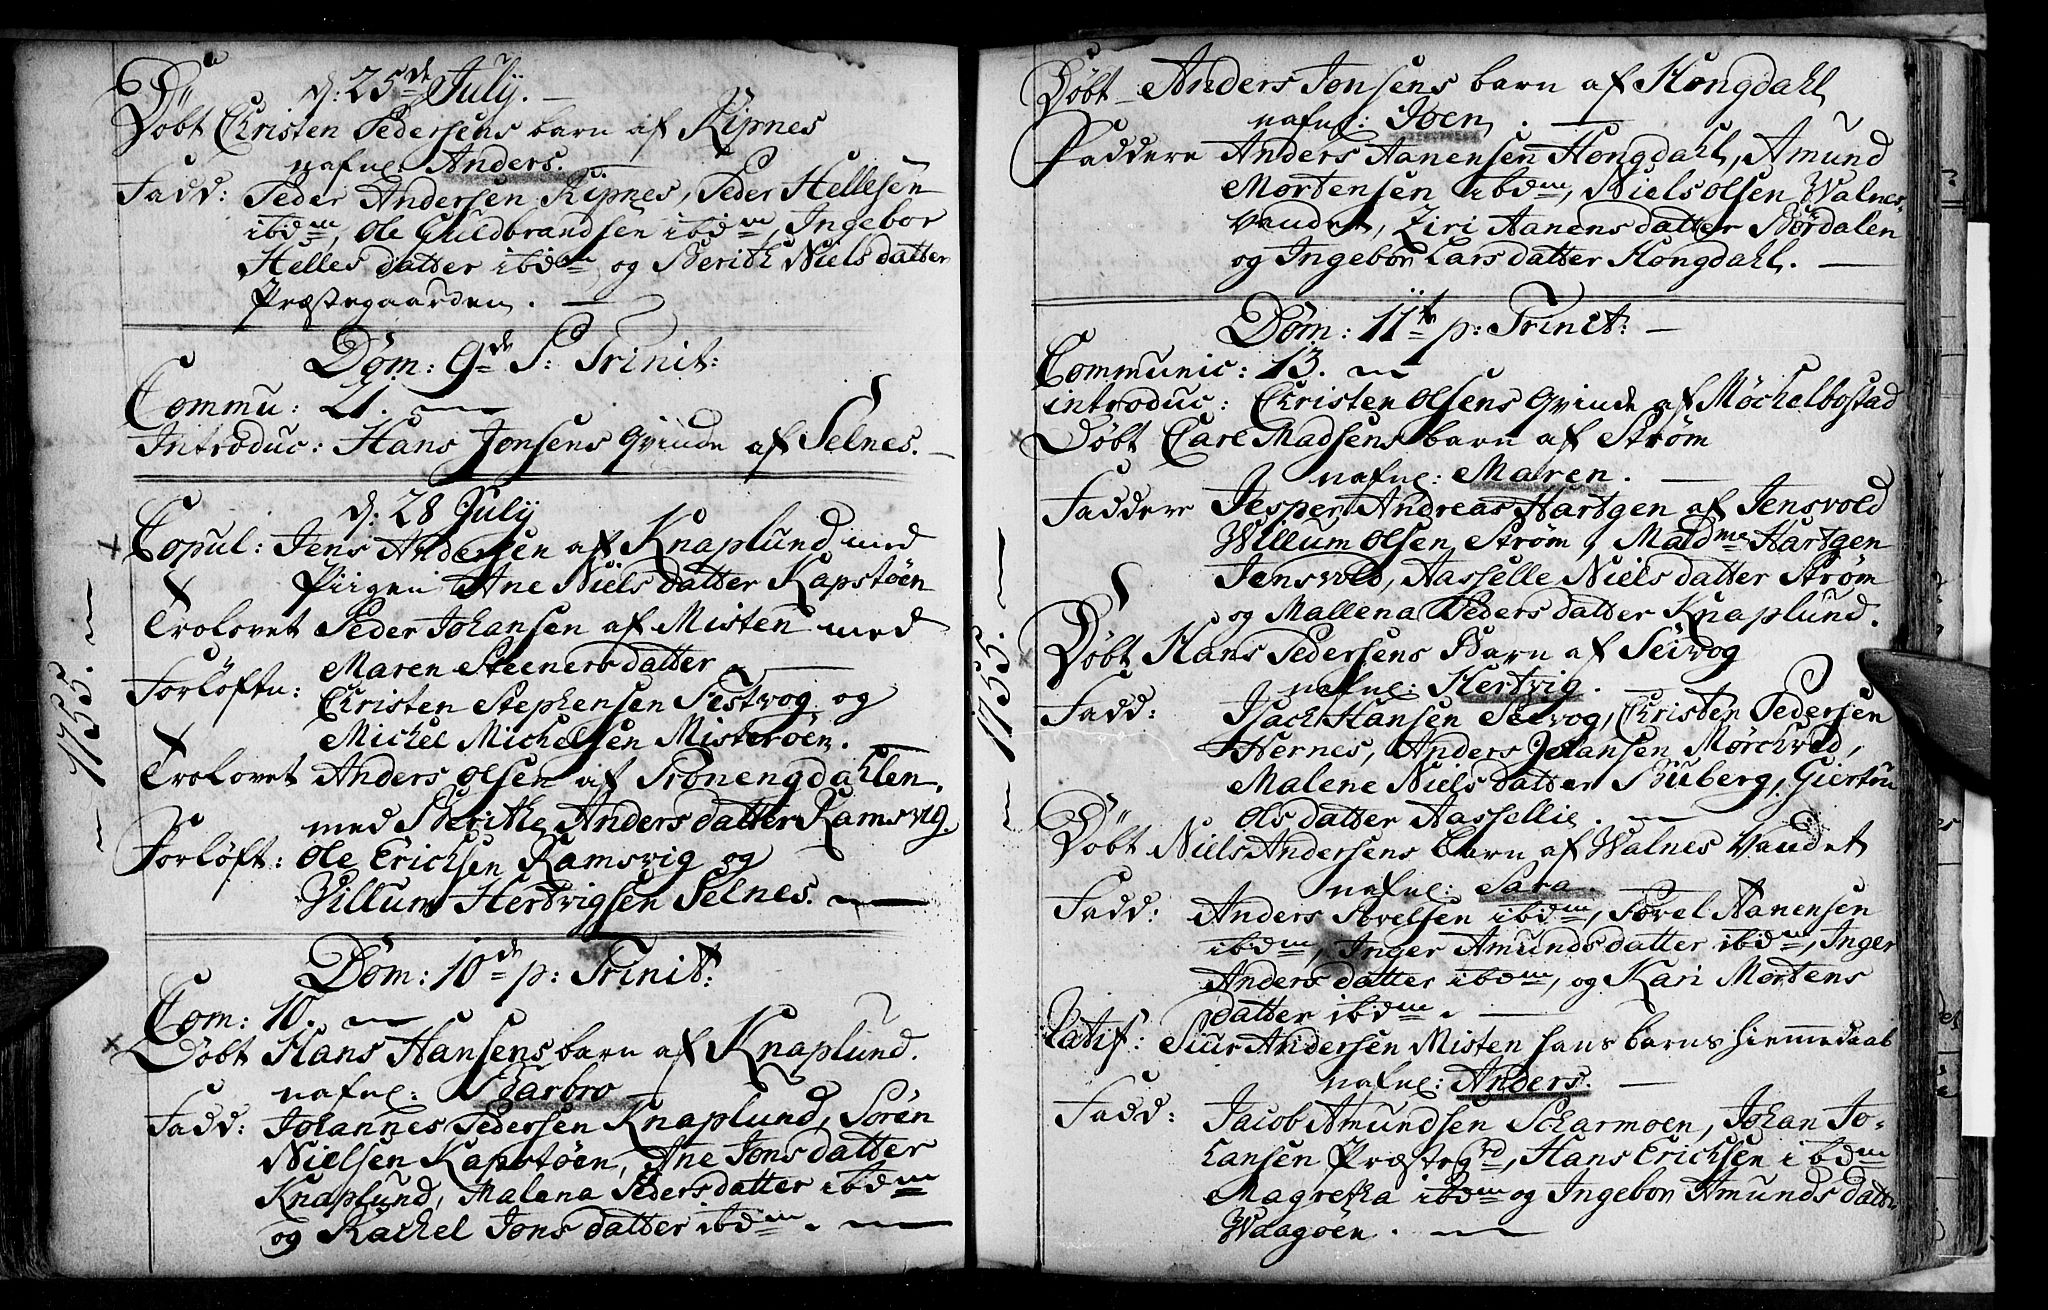 d: 25de July. –
Döbt Christen Pedersens barn af Kipnes
nafnl. Anders.
Fadd: Peder Andersen Kipnes, Peder Hellesen
ibdm, Ole Guldbrandsen ibidm, Ingebor
Helles datter ibdm og Berith Niels datter
Præstegaarden. —
Dom: 9de P: Trinit:
Commu: 21. —
Introduc: Hans Jonsens Qvinde af Selnes. –
d: 28 July
Copul: Jens Andersen af Knaplund med
Piigen Ane Niels datter Kapstöen
Trolovet Peder Johansen af Misten med
Maren Steeners datter —
Forlöftn: Christen Stephensen Festvog og
Michel Michelsen Misteröen.
Trolovet Anders Olsen af Tronengdahlen.
med Berithe Anders datter Ramsvig.
Forlöft: Ole Erichsen Ramsvig og
Villum Hertvigsen Selnes. —
– 1755. –
Dom: 10de p: Trinit:
Com: 10. —
Döbt Hans Hansens barn af Knaplund.
nafnl: Barbro
Fadd: Johannes Pedersen Knaplund, Sören
Nielsen Kapstöen, Ane Jons datter
Knaplund, Malena Peders datter ibdm
og Rachel Jons datter ibdm. —
Döbt – Anders Jonsens barn af Hongdahl
nafnl: Joen. —
Faddere Anders Aanensen Hongdahl, Amund
Mortensen ibdm, Niels Olsen Walnes-
vandet, Ziri Aanens datter Bördalen
og Ingebor Lars datter Hongdahl. —
Dom: 11te p: Trinit: –
Communic: 13. —
introduc: Christen Olsens Qvinde af Möchelbostad
Döbt Carl Madsens barn af Ström
nafnl: Maren. —
Faddere Jesper Andreas Hartgen af Jensvold
Willum Olsen Ström, Madme Hartgen
Jensvold, Aasselle Niels datter Ström
og Mallena Peders datter Knaplund.
Döbt Hans Pedersens Barn af Seivog
nafnl: Hertvig. —
Fadd: Isach Hansen Seivog, Christen Pedersen
Hernes, Anders Johansen Mörchved,
Malene Niels datter Buberg, Giertru
Ols datter Aassellie. —
– 1755. –
Döbt Niels Andersens Barn af Walnes vandet
nafnl: Sara.
Fadd: Anders Povelsen ibdm, Povel Aanensen
ibidm, Inger Amunds datter ibdm, Inger
Anders datter ibdm, og Kari Mortens
datter ibdm. —
Ratif: Siur Andersen Misten hans barns hiemmedaab
nafnl: Anders. —
Fadd: Jacob Amundsen Scharmoen, Johan Jo-
hansen Præstegrd, Hans Erichsen ibdm
Magretha ibdm og Ingebor Amunds datter
Waagöen. —